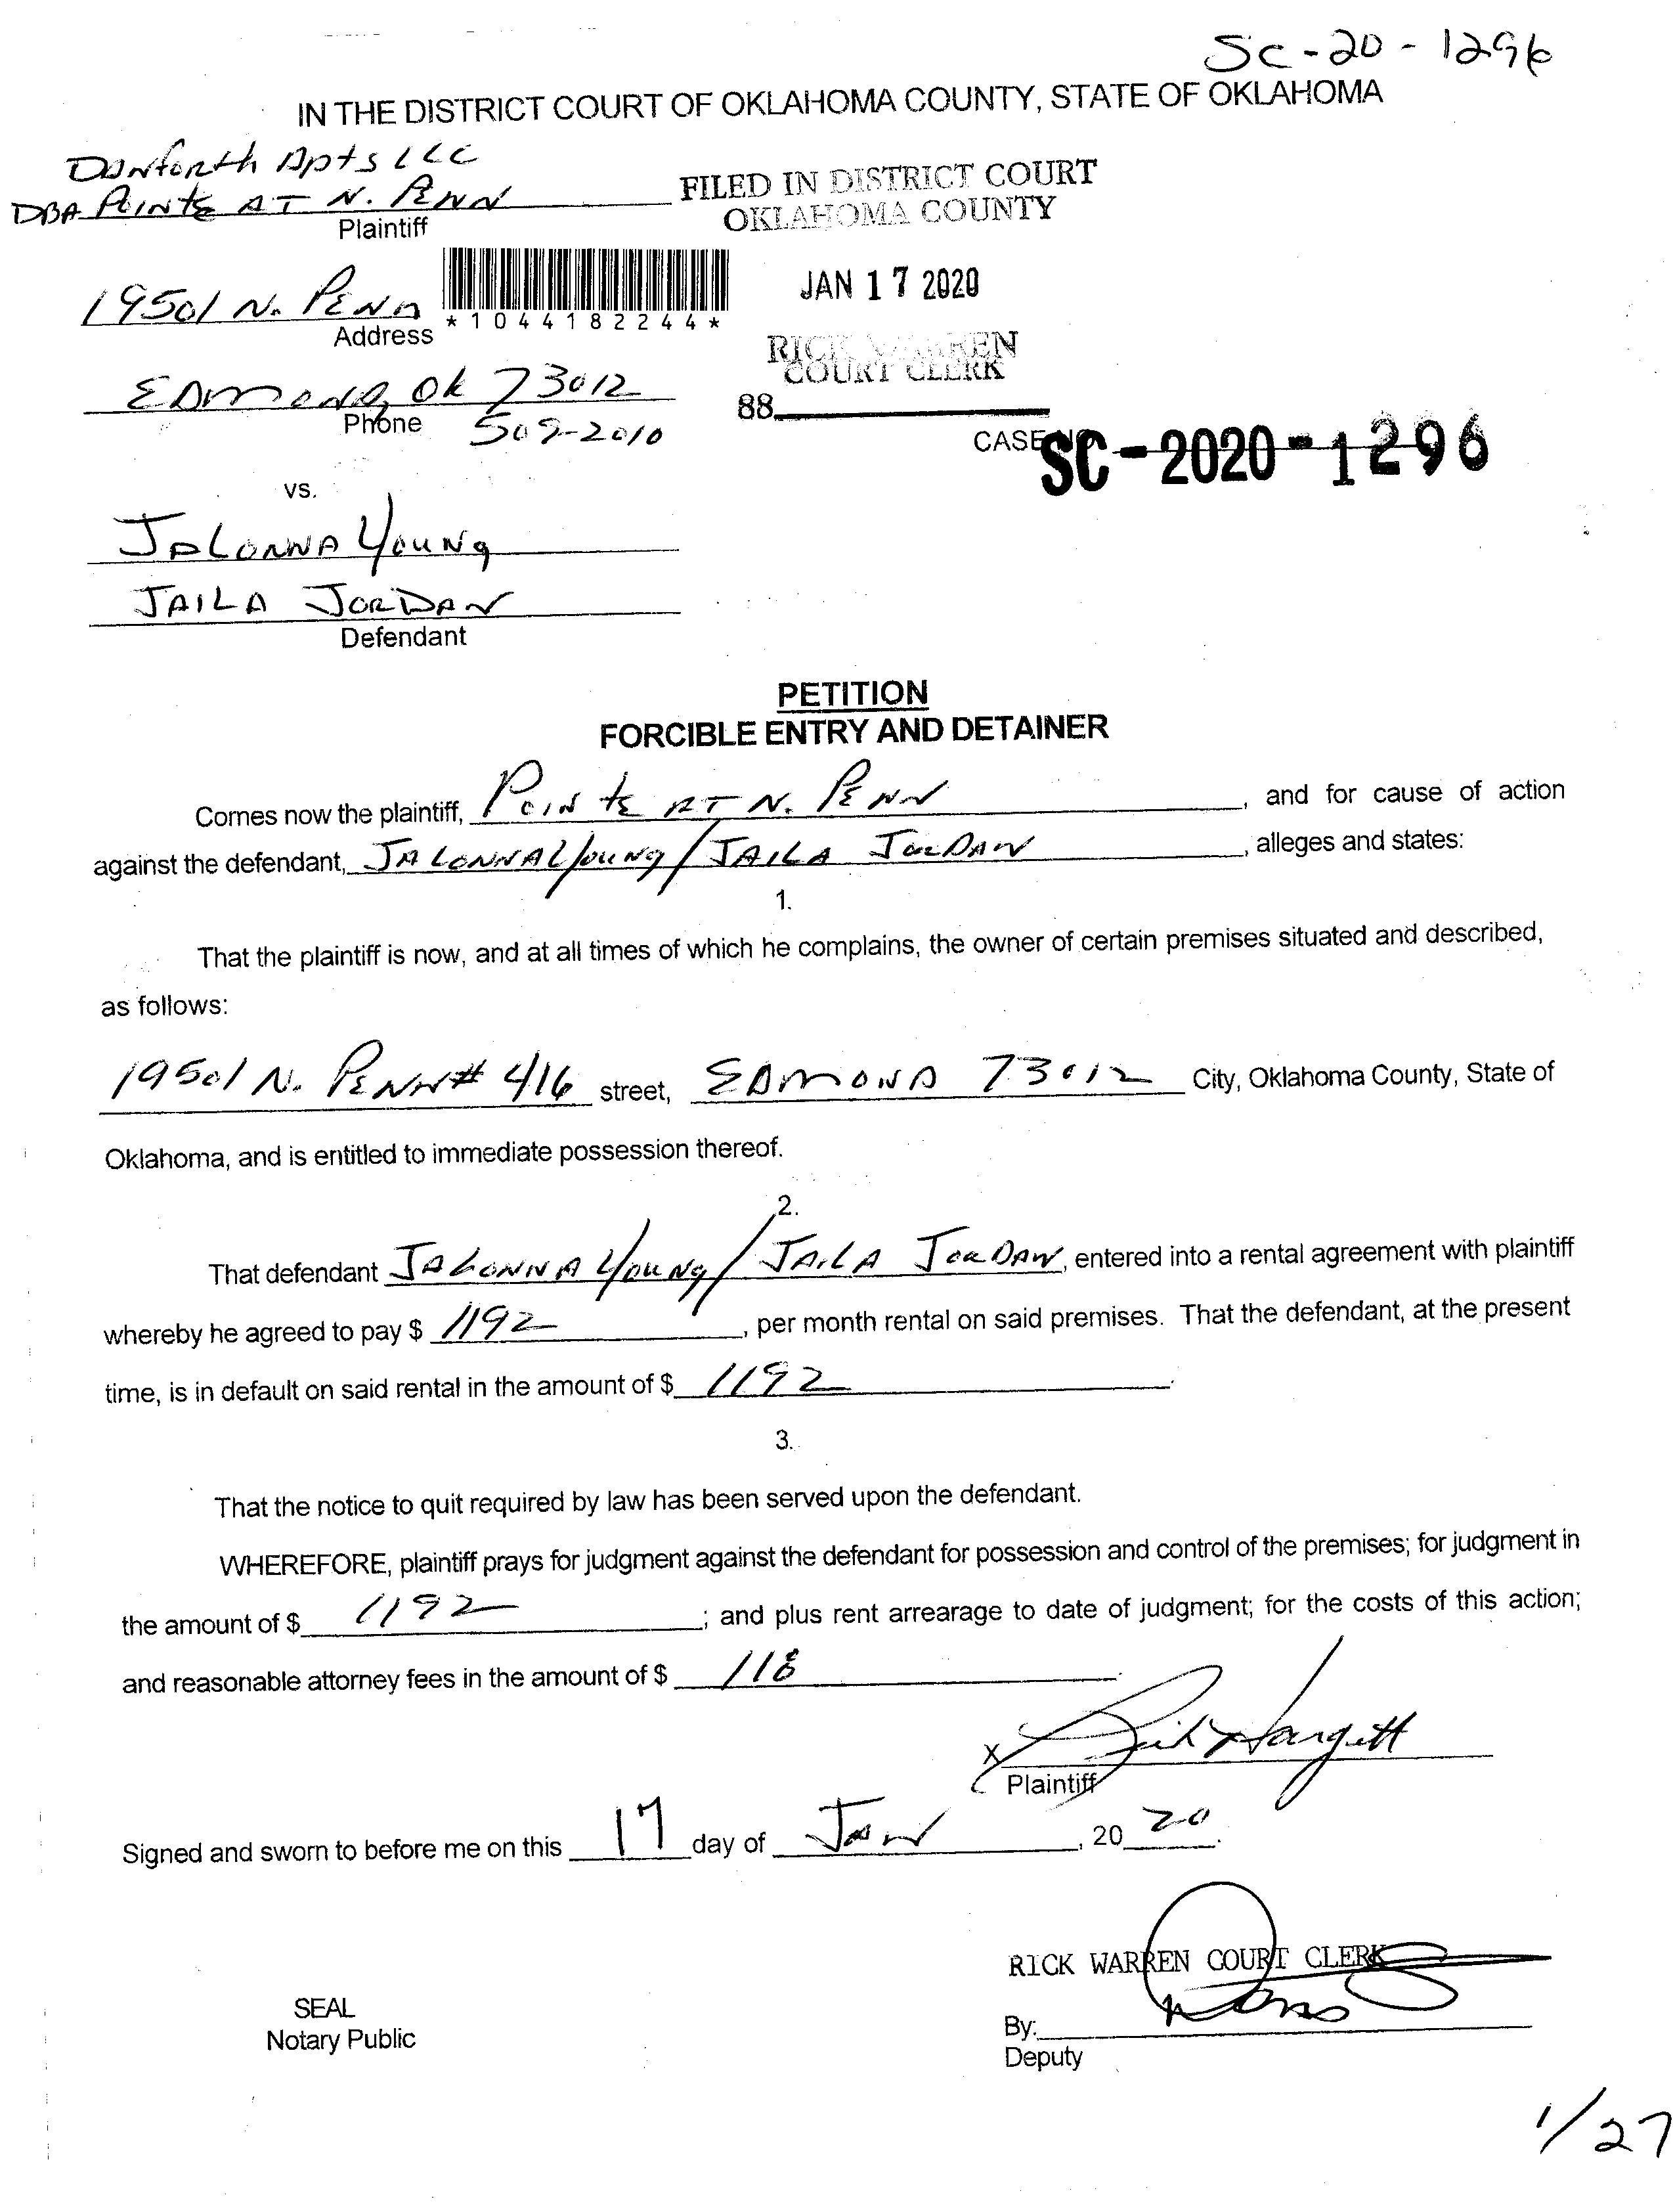 SC-20-1296
IN THE DISTRICT COURT OF OKLAHOMA COUNTY, STATE OF OKLAHOMA
Danforth Apts LLC
DBA Pointe AT N. PENN
Plaintiff
FILED IN DISTRICT COURT
OKLAHOMA COUNTY
JAN 17 2020
RICK WARREN
COURT CLERK
19501 N. PENN
Address
*1044182244*
EDMOND, OK 73012
Phone 509-2010
88
CASE NO. SC-2020-1296
vs.
JALONNA YOUNG
JAILA JORDAN
Defendant
PETITION
FORCIBLE ENTRY AND DETAINER
Comes now the plaintiff, POINTE AT N. PENN, and for cause of action
against the defendant, JALONNA YOUNG / JAILA JORDAN, alleges and states:
1.
That the plaintiff is now, and at all times of which he complains, the owner of certain premises situated and described,
as follows:
19501 N. PENN # 416 street, EDMOND 73012 City, Oklahoma County, State of
Oklahoma, and is entitled to immediate possession thereof.
2.
That defendant JALONNA YOUNG / JAILA JORDAN, entered into a rental agreement with plaintiff
whereby he agreed to pay $ 1192, per month rental on said premises. That the defendant, at the present
time, is in default on said rental in the amount of $ 1192.
3.
That the notice to quit required by law has been served upon the defendant.
WHEREFORE, plaintiff prays for judgment against the defendant for possession and control of the premises; for judgment in
the amount of $ 1192; and plus rent arrearage to date of judgment; for the costs of this action;
and reasonable attorney fees in the amount of $ 118.
X Hargett
Plaintiff
Signed and sworn to before me on this 17 day of JAN, 2020.
RICK WARREN COURT CLERK
SEAL
Notary Public
By:
Deputy
1/27